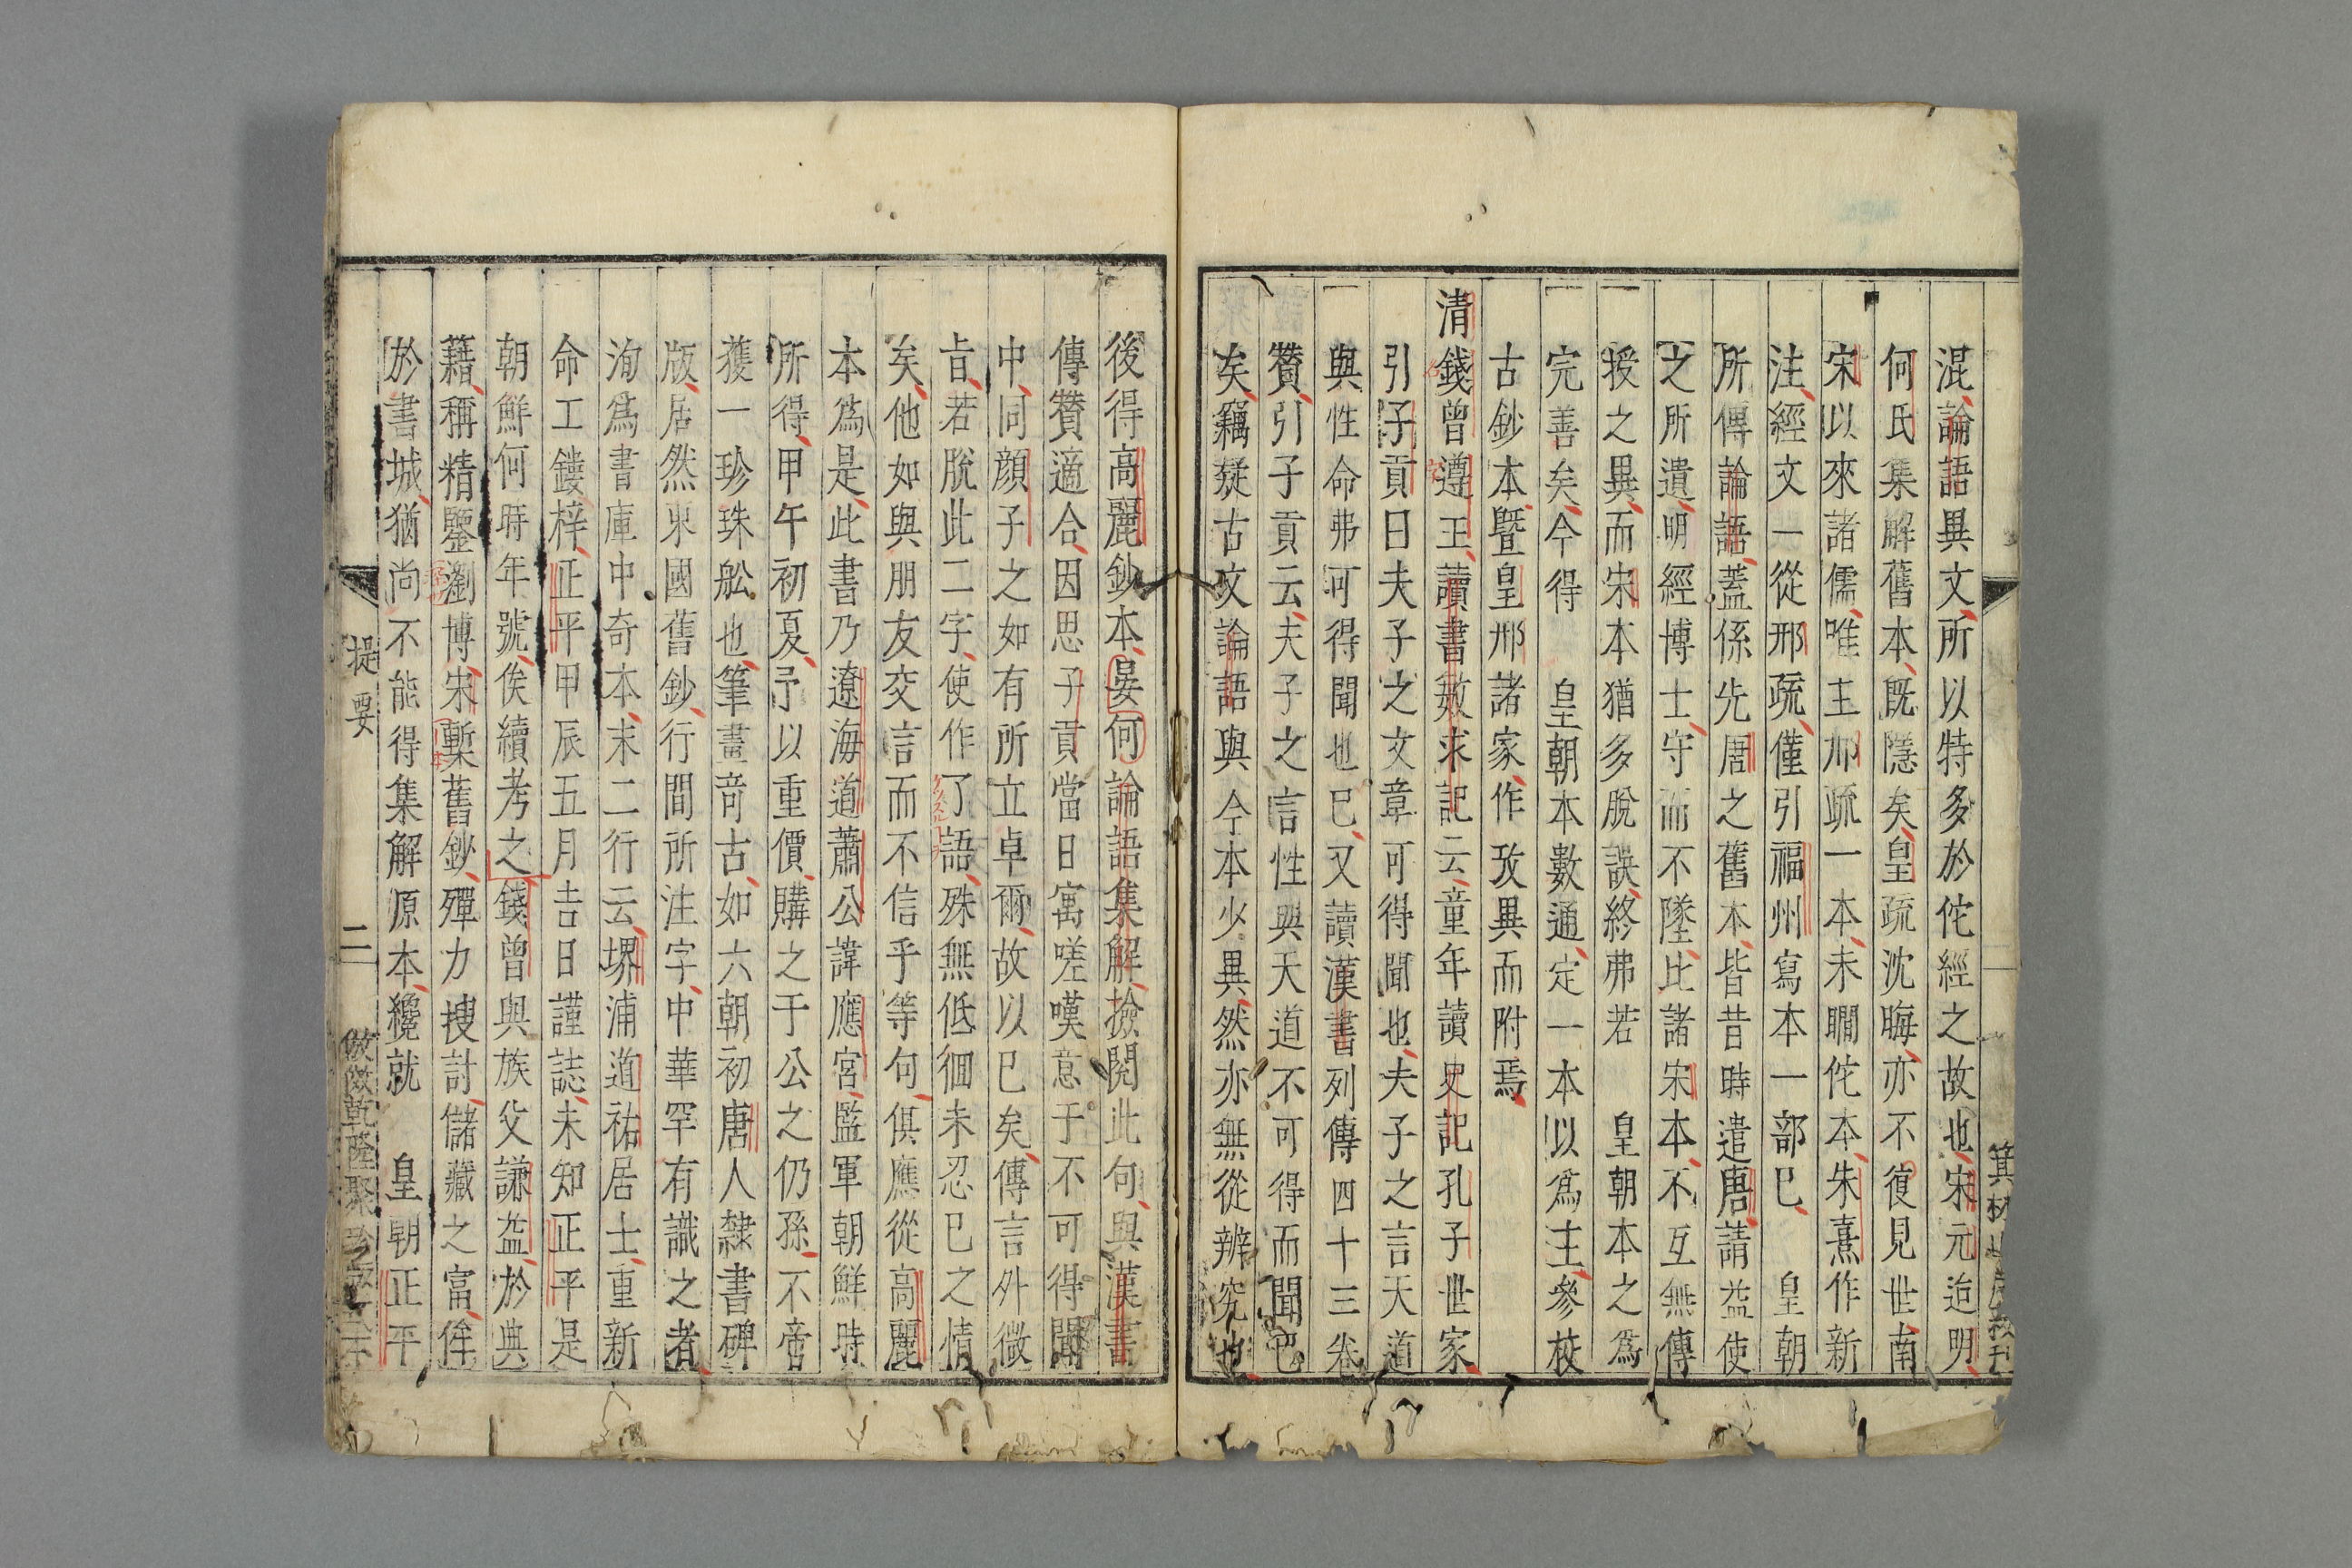 混論語異文所以特多於佗經之故也宋元迄明
何氏集解舊本既隱矣皇疏沈晦亦不復見世南
宋以來諸儒唯王邢疏一本未睭佗本朱熹作新
注經文一從邢疏僅引福州寫本一部巳　皇朝
所傳論語蓋係先周之舊本皆昔時遣唐請益使
之所遺明經博士守而不墜比諸宋本不互無傳
授之異而宋本猶多脫誤終弗若　皇朝本之爲
完善矣今得　皇朝本數通定一本以爲主參校
古鈔本暨皇邢諸家作攷異而附焉
清錢曾遵王讀書敏求記云童年讀史記孔子世家
引子貢曰夫子之文章可得聞也夫子之言天道
與性命弗可得聞也巳又讀漢書列傳四十三卷
贊引子貢云夫子之言性與天道不可得而聞巳
矣竊疑古文論語與今本少異然亦無從辨究也
後得高麗鈔本晏何論語集解撿閱此句與漢書
傳贊適合因思子貢當日寓嗟嘆意于不可得聞
中同顔子之如有所立卓爾故以巳矣傳言外微
旨若脫此二字使作了語殊無低徊未忍巳之情
矣他如與朋友交言而不信乎等句俱應從高麗
本爲是此書乃遼海道蕭公諱應宮監軍朝鮮時
所得甲午初夏予以重價購之于公之仍孫不啻
獲一珍珠舩也筆畫竒古如六朝初唐人隸書碑
版居然東國舊鈔行間所注字中華罕有識之者
洵爲書庫中奇本末二行云堺浦道祐居士重新
命工鏤梓正平甲辰五月吉日謹誌未知正平是
朝鮮何時年號俟續考之錢曾與族父謙益於典
籍稱精鑒瀏博宋槧舊鈔殫力搜討儲藏之富侔
於書城猶尚不能得集解原本纔就　皇朝正平
提要　二